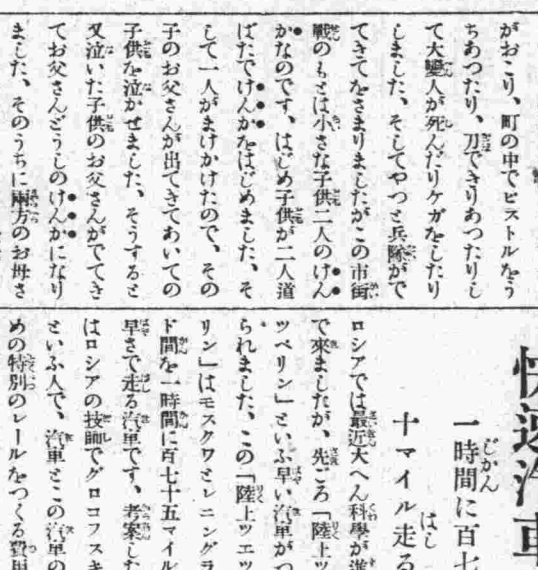 がおこり、町の中でピストルをう
ちあつたり、刀できりあつたりし
て大變人が死んだりケガをしたり
しました、そしてやつと兵隊がで
てきてをさまりましたがこの市街
戰のもとは小さな子供二人のけん
かなのです、はじめ子供が二人道
ばたでけんかをはじめました、そ
して一人がまけかけたので、その
子のお父さんが出てきてあいての
子供を泣かせました、そうすると
又泣いた子供のお父さんがでてき
てお父さんどうしのけんかになり
ました、そのうちに兩方のお母さ
快速汽車
一時間に百七
十マイル走る
ロシアでは最近大へん科學が進
で來ましたが、先ごろ「陸上ツ
ツペリン」といふ早い汽車がつ
られました、この「陸上ツエッ
リン」はモスクワとレニングラ
ド間を一時間に百七十五マイル
早さで走る汽車です、考案した
はロシアの技師でグロコフスキ
といふ人で、汽車とこの汽車の
めの特別のレールをつくる費用